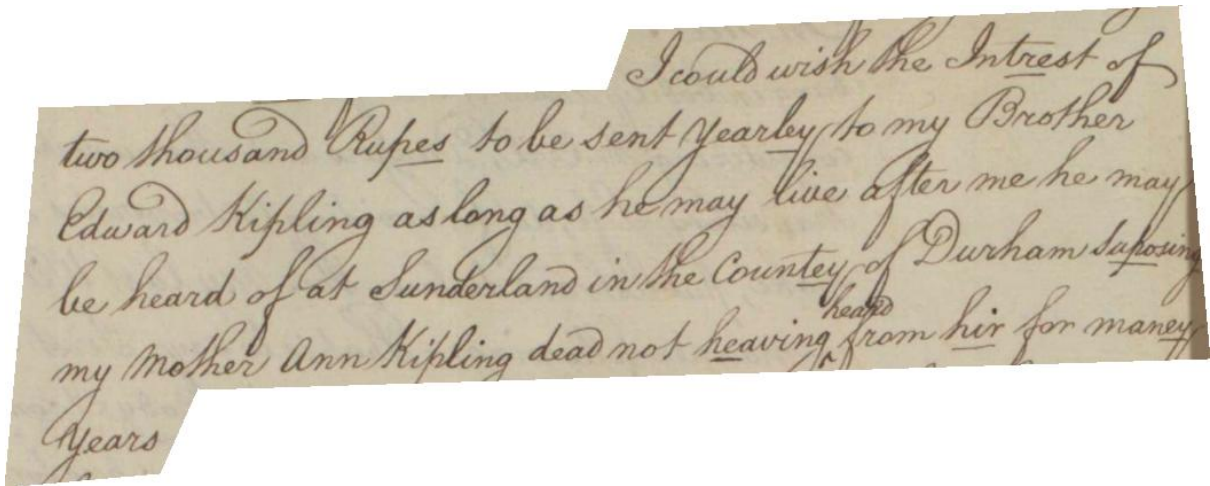 I could wish the Intrest of
two thousand Rupes to be sent yearley to my Brother
Edward Kipling as long as he may live after me he may
be heard of at Sunderland in the Countey of Durham Suposing
my Mother Ann Kipling dead not heaving heard from hir for maney
Years